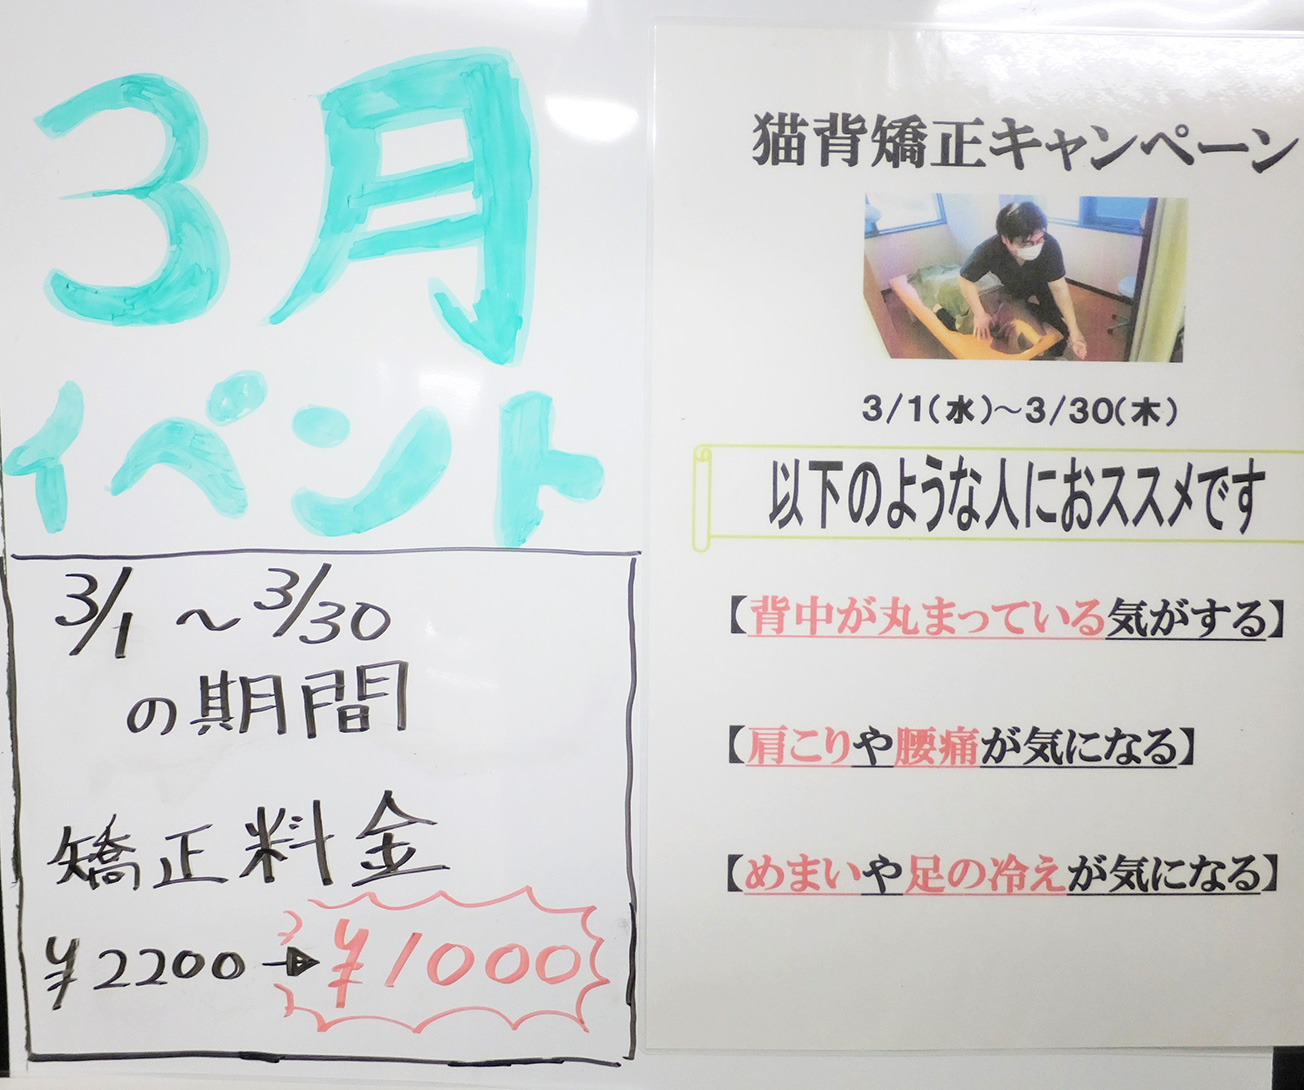 3月
イベント
3/1 ～ 3/30
の期間
矯正料金
¥2200 → ¥1000
猫背矯正キャンペーン
3/1(水)～3/30(木)
以下のような人におススメです
【背中が丸まっている気がする】
【肩こりや腰痛が気になる】
【めまいや足の冷えが気になる】